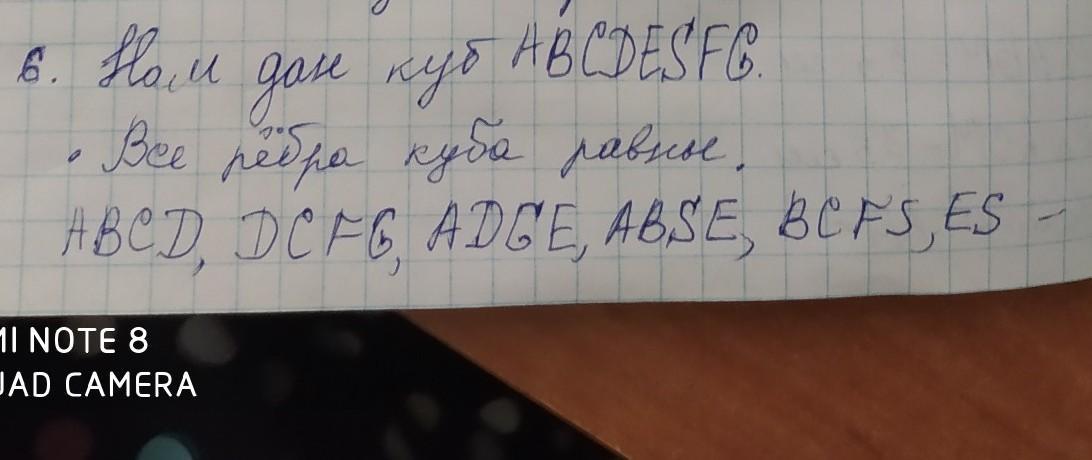 6. Нам дан куб ABCDESFG.
• Все рёбра куба равные.
ABCD, DCFG, ADGE, ABSE, BCFS, ES -
MI NOTE 8
UAD CAMERA